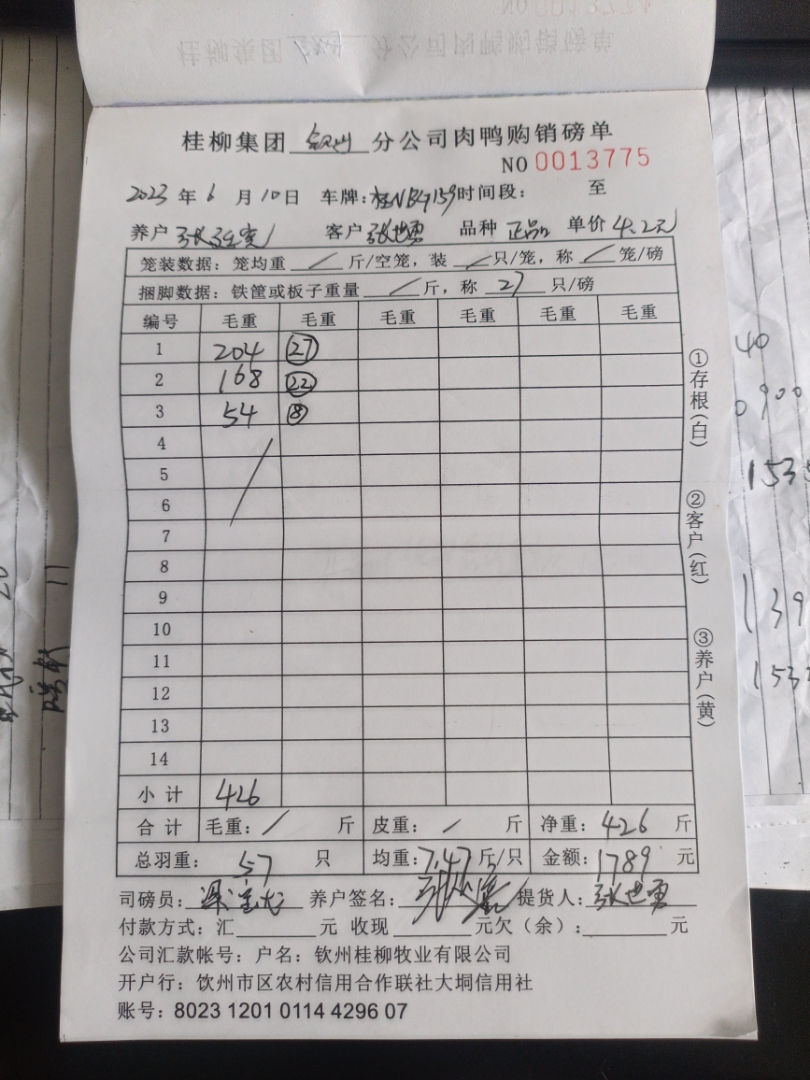 桂柳集团 钦州 分公司肉鸭购销磅单
NO 0013775
2023 年 6 月 10 日 车牌: 时间段: 至
养户 客户 张世勇 品种 正品 单价 4.2元
笼装数据:笼均重 / 斤/空笼,装 / 只/笼,称 / 笼/磅
捆脚数据:铁筐或板子重量 / 斤,称 27 只/磅
编号 毛重 毛重 毛重 毛重 毛重 毛重
1 204 27
2 168 22
3 54 8
4
5
6
7
8
9
10
11
12
13
14
小计 426
合计 毛重: / 斤 皮重: / 斤 净重: 426 斤
总羽重: 57 只 均重: 7.47 斤/只 金额: 1789 元
司磅员: 养户签名: 提货人: 张世勇
付款方式:汇 元 收现 元欠(余): 元
公司汇款帐号:户名:钦州桂柳牧业有限公司
开户行:饮州市区农村信用合作联社大垌信用社
账号:8023 1201 0114 4296 07
①存根(白)
②客户(红)
③养户(黄)